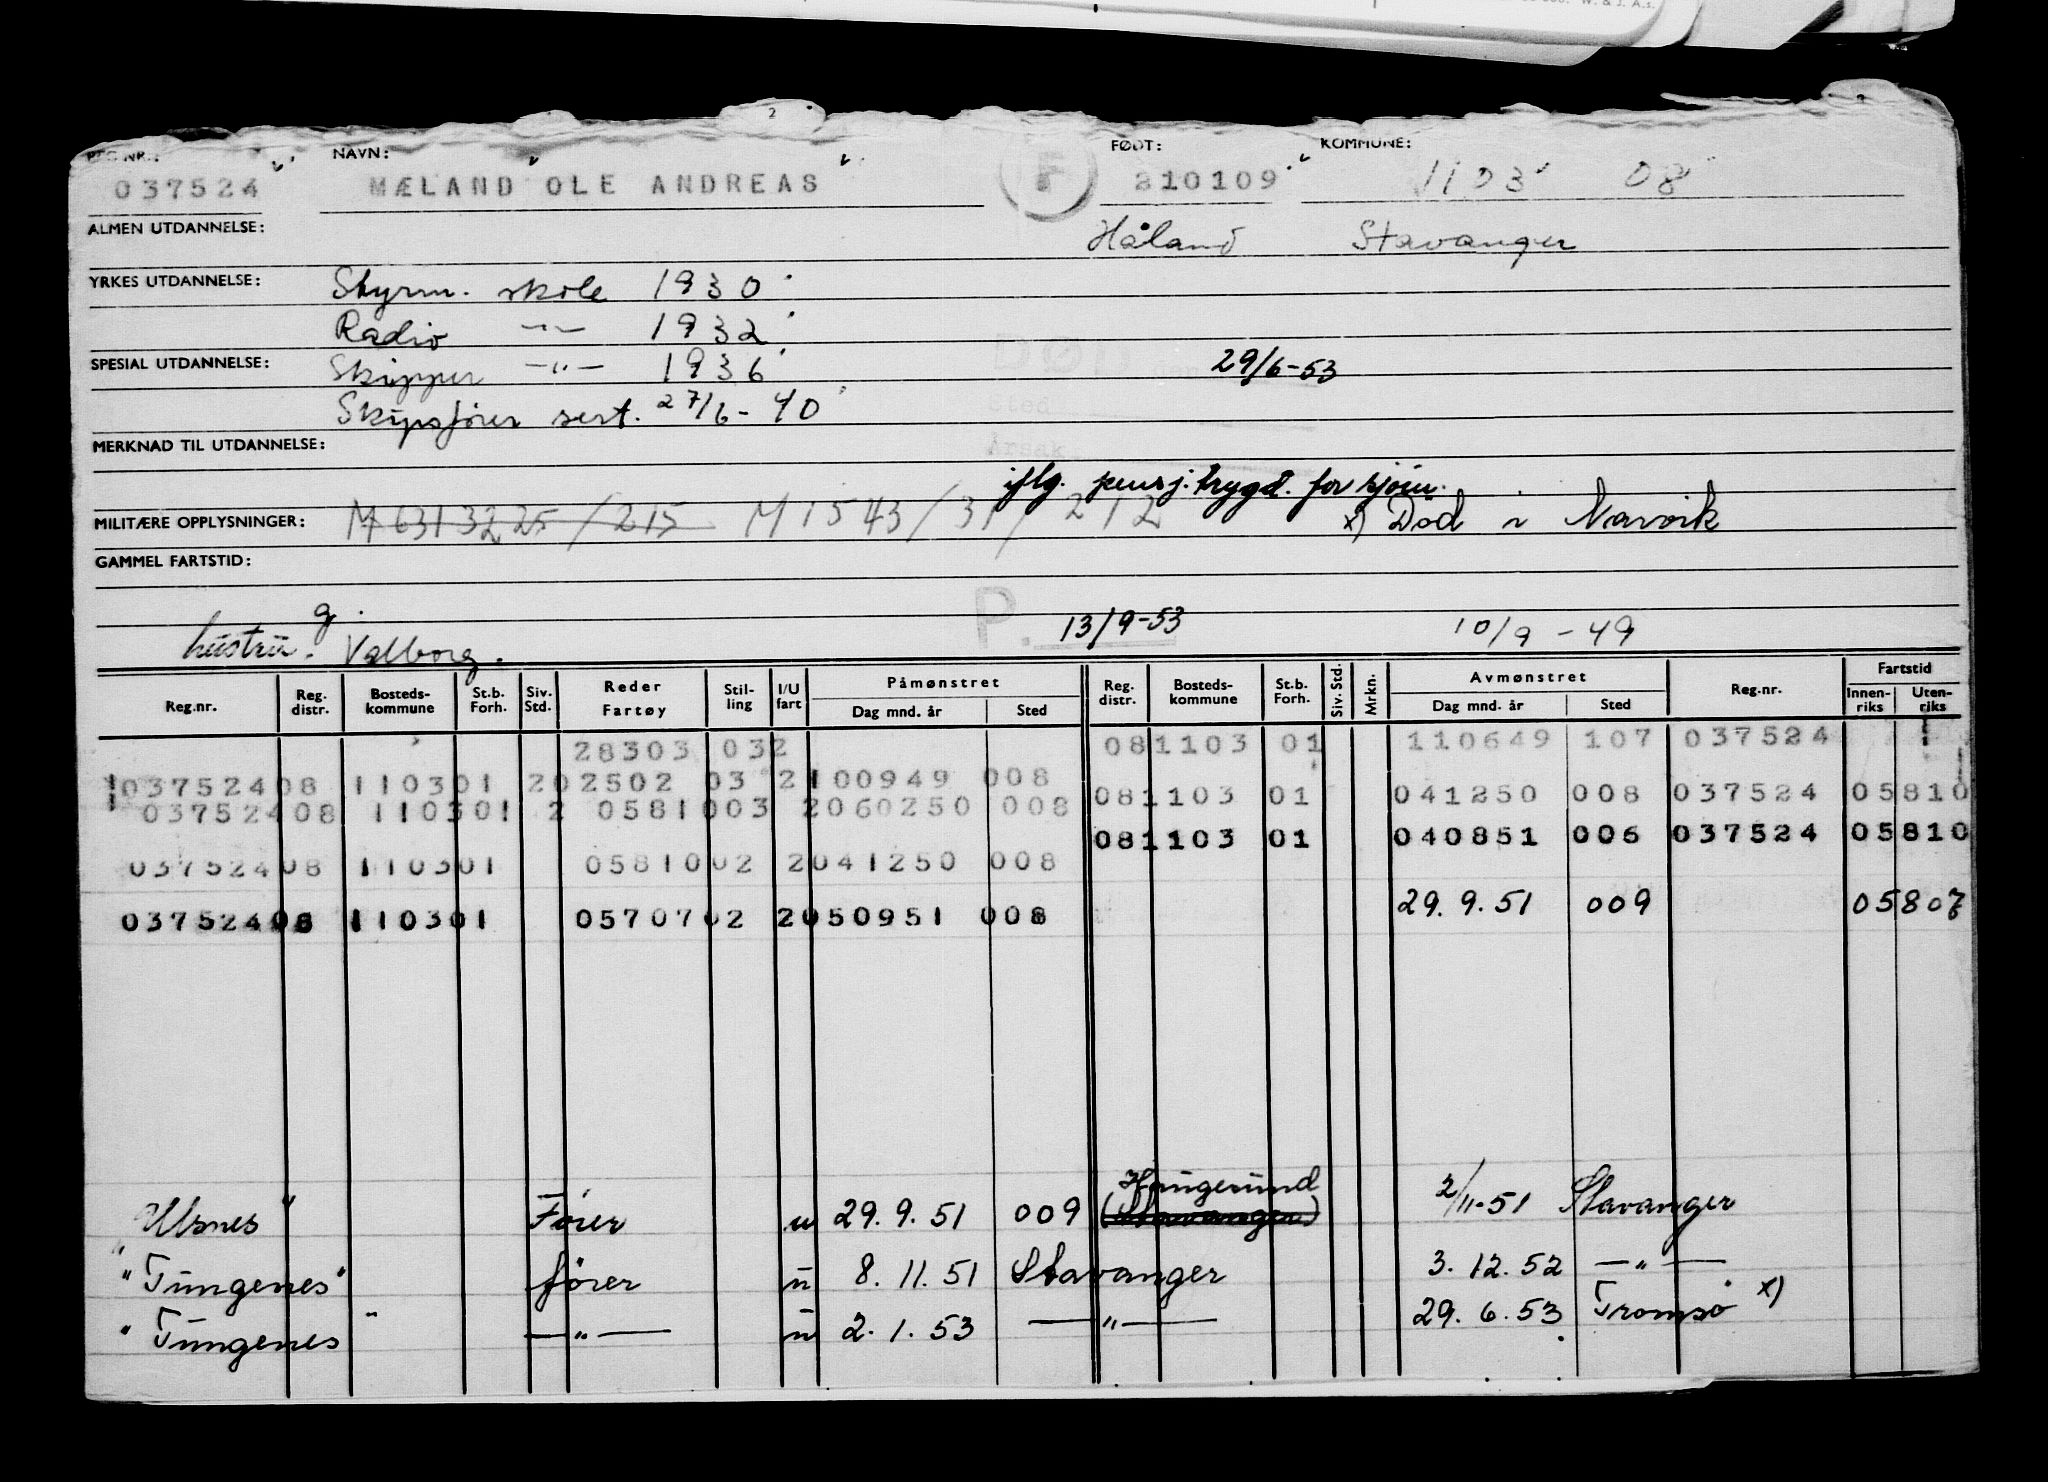 REG.NR.: NAVN: FØDT: KOMMUNE:
037524 MÆLAND OLE ANDREAS F 310109 1103 08
ALMEN UTDANNELSE: Håland Stavanger
YRKES UTDANNELSE: Styrm. skole 1930
Radio —"— 1932
SPESIAL UTDANNELSE: Skipper —"— 1936 DØD den 29/6-53
Skipsfører sert. 27/6-40 Sted
MERKNAD TIL UTDANNELSE: Årsak
iflg. pensj.trygd. for sjøm.
MILITÆRE OPPLYSNINGER: M 6313225/215 M 1543/31/212 x) Död i Narvik
GAMMEL FARTSTID:
g. P. 13/9-53 10/9-49
hustru. Valborg.
Reg.nr. Reg. distr. Bosteds-kommune St.b. Forh. Siv. Std. Reder Fartøy Stil-ling I/U fart Påmønstret Dag mnd. år Sted Reg. distr. Bosteds-kommune St.b. Forh. Siv. Std. Mrkn. Avmønstret Dag mnd. år Sted Reg.nr. Fartstid Innen-riks Uten-riks
28303 032 081103 01 110649 107 037524
03752408 110301 202502 03 2100949 008 081103 01 041250 008 037524 05810
03752408 110301 2 0581003 2060250 008
081103 01 040851 006 037524 05810
03752408 110301 0581002 2041250 008
29.9.51 009 05807
03752408 110301 0570702 2050951 008
Haugesund
"Ulsnes" Fører u 29.9.51 009 (Stavanger) 2/11-51 Stavanger
"Tungenes" fører u 8.11.51 Stavanger 3.12.52 —"—
"Tungenes" —"— u 2.1.53 —"— 29.6.53 Tromsø x)